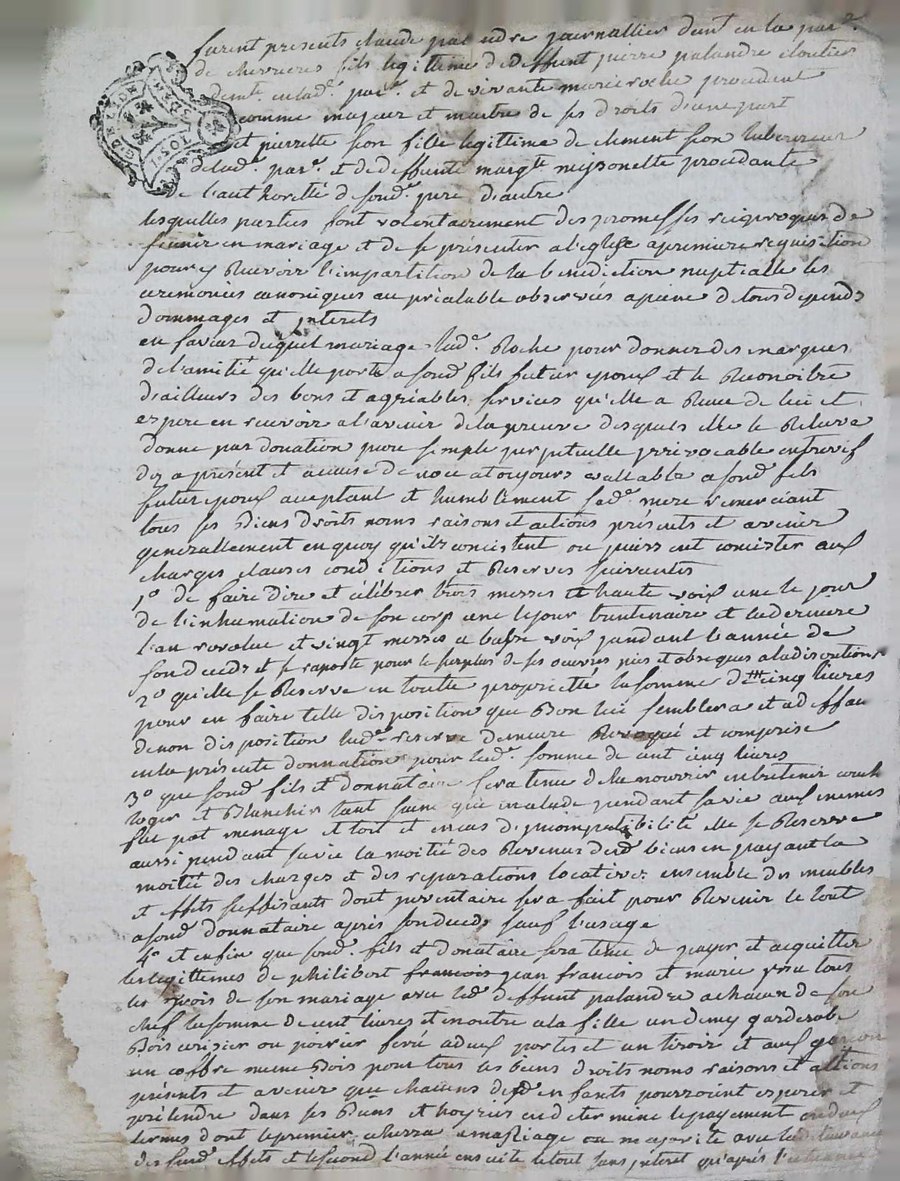 furent presents claude palandre journallier demt en la parr.
de chevrieres fils legitime de deffunt pierre palandre cloutier
demt. en lad. parr. et de vivante marie roche procedent
comme majeur et maitre de ses droits d'une part
et pierrette sion fille legittime de clement sion
de lad. parr. et de deffunte margte. procedante
de l'authoretté de sond. pere d'autre
lesquelles parties font volontairement des promesses reciproques de
s'unir en mariage et de se présenter a l'eglise a premiere requisition
pour y recevoir l'impartition de la benediction nuptialle les
ceremonies canoniques au préalable observées a peine de tous depends
dommages et interets
en faveur duquel mariage lad. Roche pour donner des marques
de l'amitié qu'elle porte a sond. fils futur epoux et le Reconoitre
d'ailleurs des bons et agréables services qu'elle a Recue de lui et
espere en recevoir a l'avenir de la preuve desquels elle le Releve
donne par donation pure simple perpetuelle yrrevocable entrevif
dez a présent et a cause de noce a toujours vallable a sond. fils
futur epoux aceptant et humblement sad. mere remerciant
tous ses biens droits noms raisons et actions présents et avenir
generallement en quoy qu'ils concistent ou puissent concister aux
charges clauses conditions et Reserves suivantes
1° de faire dire et célébrer trois messes a haute voix une le jour
de l'inhumation de son corp une le jour trentenaire et la derniere
l'an revolue et vingt messes a basse voix pendant l'année de
son deceds et se raporte pour le surplus de ses oeuvres pies et obseques a la discretion
2° qu'elle se Reserve en toutte proprietté la somme de cinq livres
pour en faire telle disposition que Bon lui semblera et a deffau
de non disposition lad. reserve demeure Revoqué et comprise
en la présente donnation pour lad. somme de cent cinq livres
3° que sond. fils et donnataire sera tenu de la nourrir entretenir
loger et Blanchir tant saine que malade pendant sa vie aux memes
feu pot menage et toit et en cas d'yncompatibilité elle se Reserve
aussi pendant sa vie la moitié des Revenus desd. biens en payant la
moitié des charges et des réparations locatives ensemble des meubles
et effets suffisants dont ynventaire sera fait pour Revenir le tout
a sond. donnataire après son deceds sauf l'usage
4° et enfin que sond. fils et donataire sera tenu de payer et acquitter
les legittimes de philibert francois jean francois et marie tous
de son mariage avec led. deffunt palandre a chacun de son
chef la somme de cent livres et en outre a la fille un demy garderobe
Bois cerisier ou poirier ferré a deux portes et un tiroir et aux garcon
un coffre meme Bois pour tous les biens droits noms raisons et actions
présents et avenir que chacuns desd. enfants pourroient esperer et
prétendre dans ses biens et hoyries en determine le payement en deux
termes dont le premier echerra a mariage ou majorité avec la delivrance
des susd. effets et le second l'année ensuite le tout sans ynteret qu'après